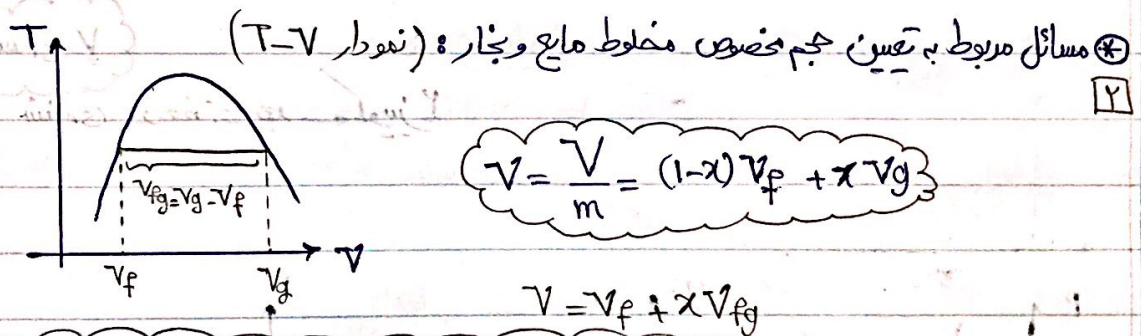 ⊛ مسائل مربوط به تعیین حجم مخصوص مخلوط مایع و بخار : (نمودار T-V)
۲
T
V = V/m = (1-x) Vf + x Vg
Vfg = Vg - Vf
V
Vf Vg
V = Vf + x Vfg